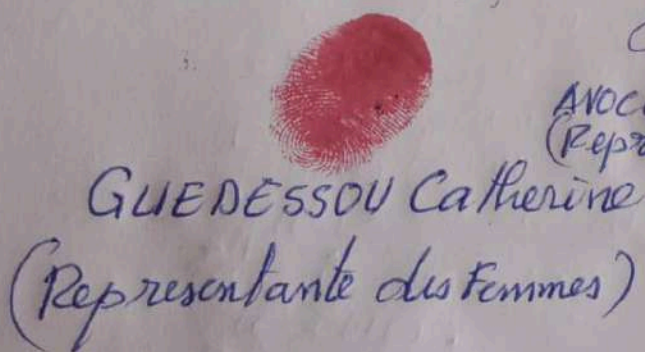 GUEDESSOU Catherine
(Representante des Femmes)